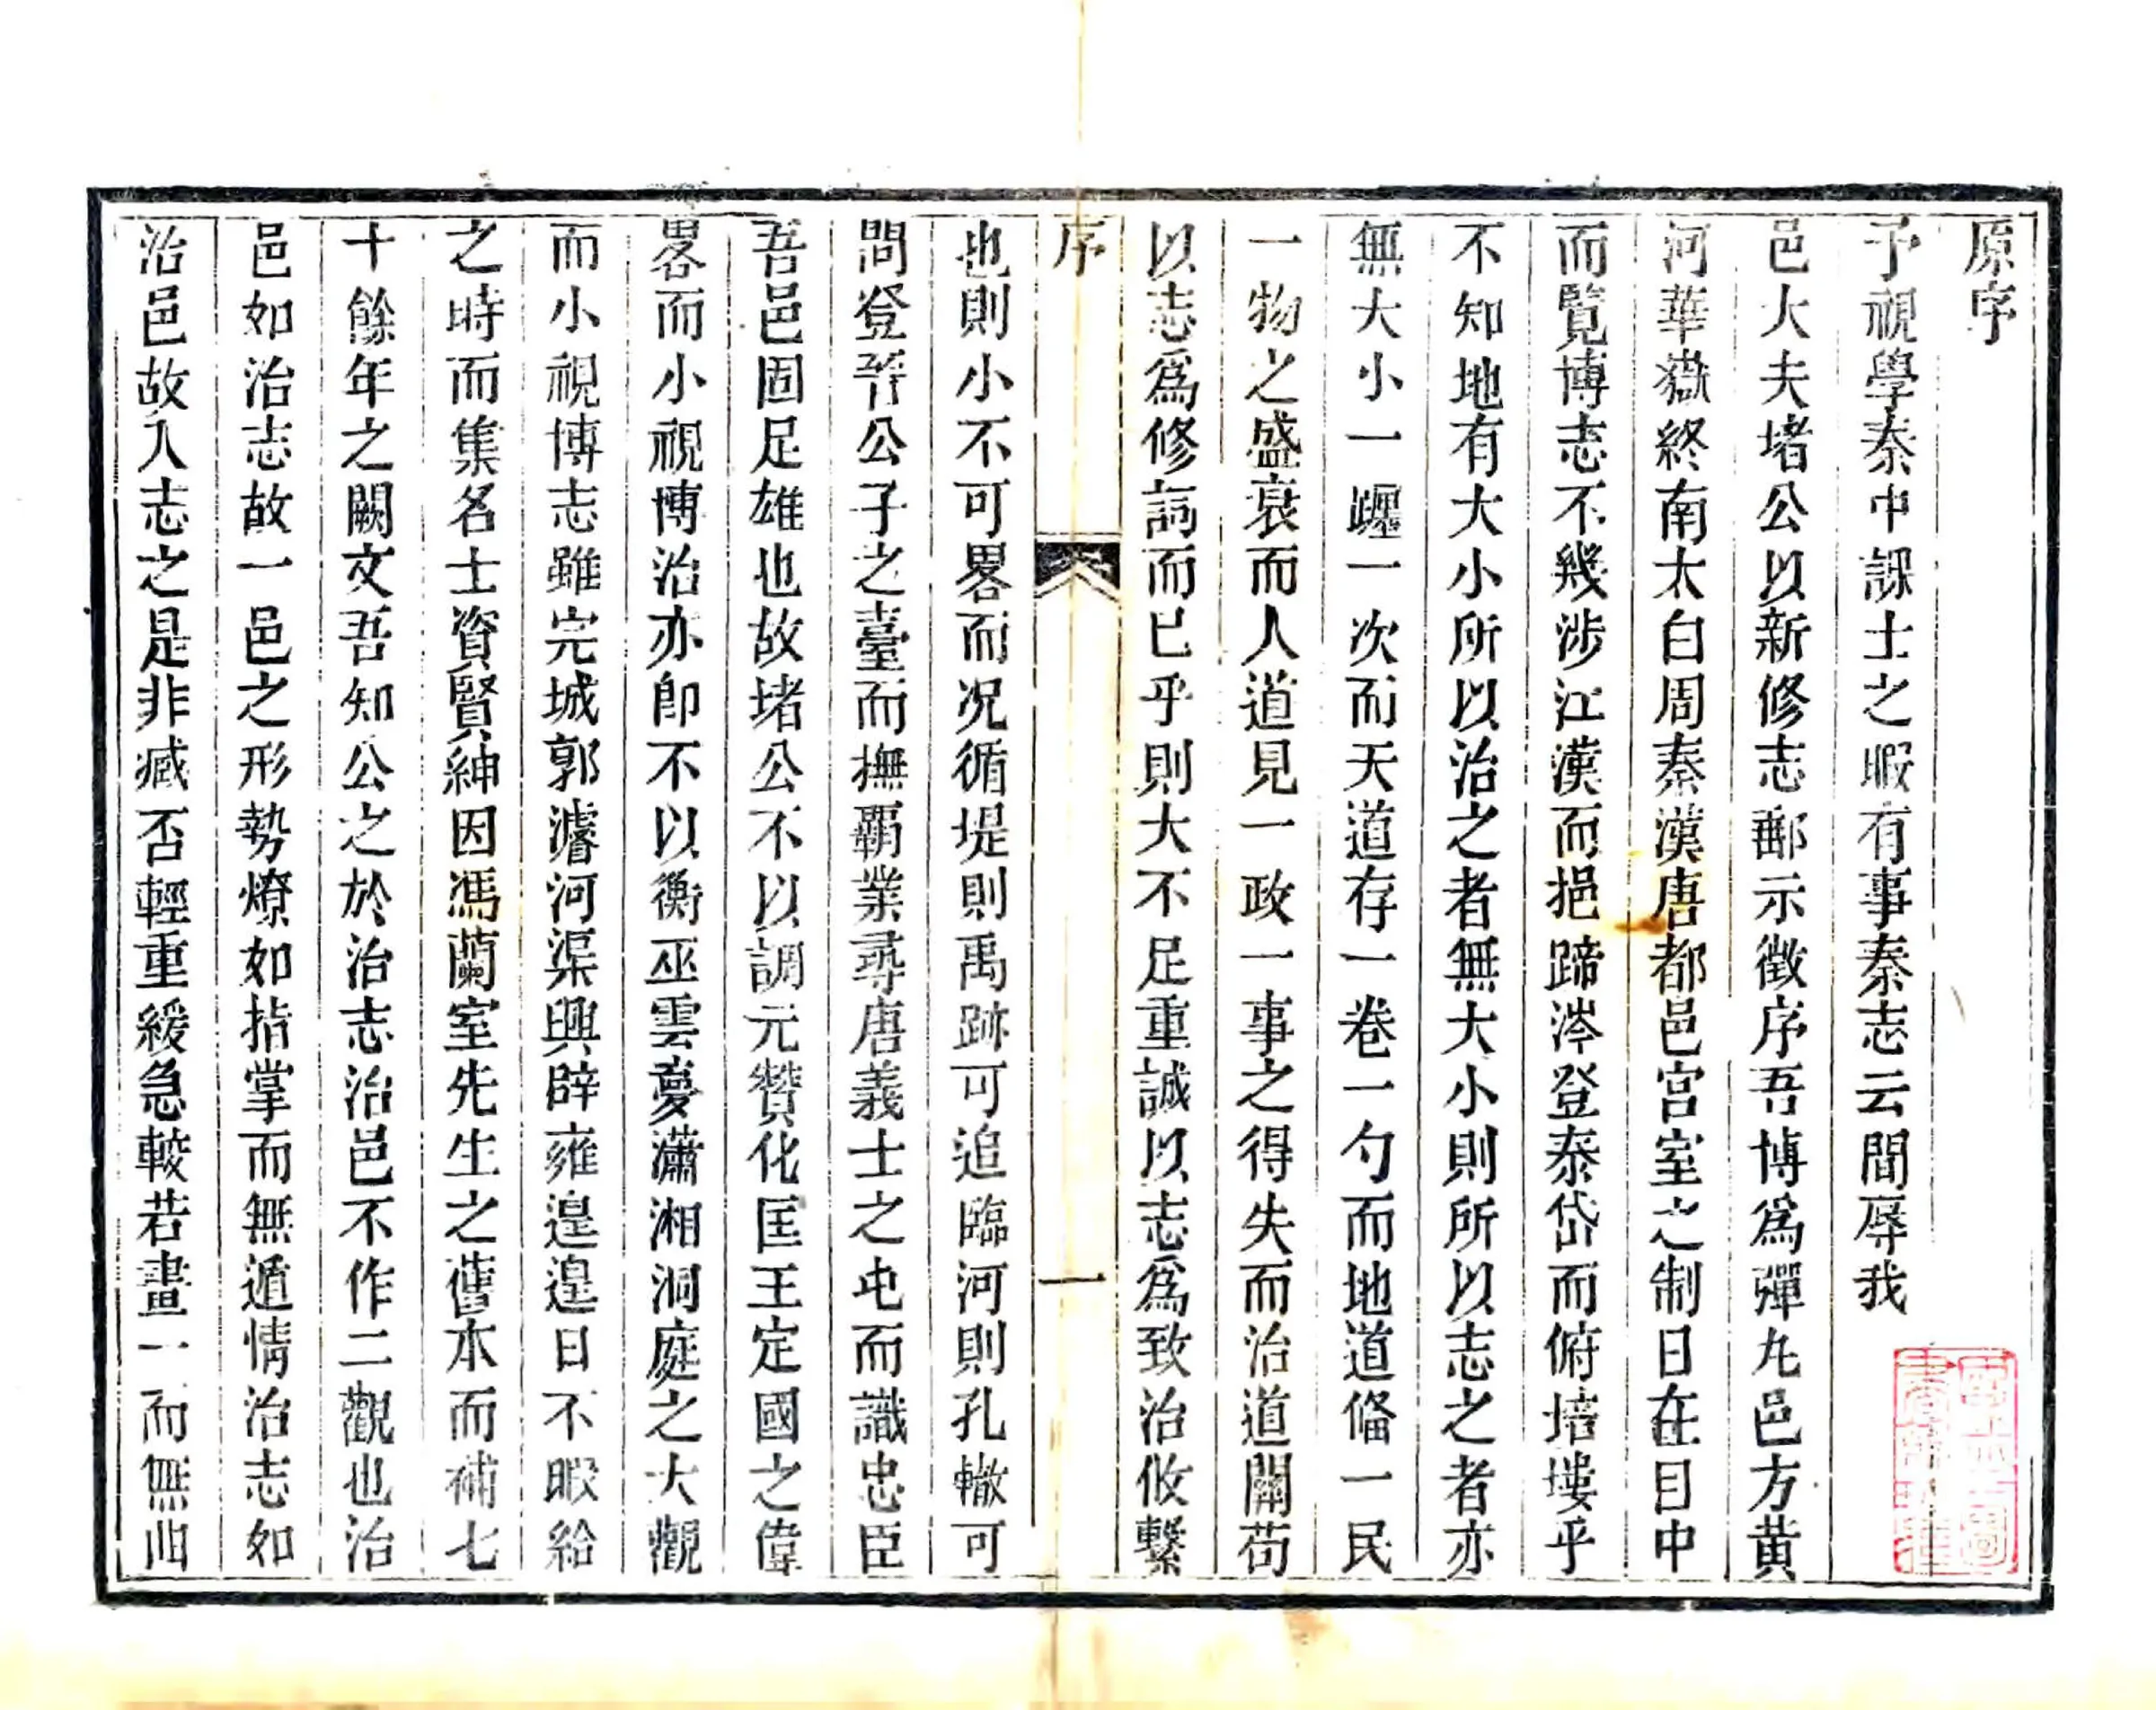 原序
予視學秦中課士之暇有事秦志云間辱我
邑大夫堵公以新修志郵示徵序吾博爲彈丸邑方黃
河華嶽終南太白周秦漢唐都邑宮室之制日在目中
而覧博志不幾涉江漢而挹蹄涔登泰岱而俯培塿乎
不知地有大小所以治之者無大小則所以志之者亦
無大小一躔一次而天道存一卷一勺而地道俻一民
一物之盛衰而人道見一政一事之得失而治道關苟
以志爲修詞而已乎則大不足重誠以志爲致治攸繫
序
一
也則小不可畧而况循堤則禹跡可追臨河則孔轍可
問登晉公子之臺而撫覇業尋唐義士之屯而識忠臣
吾邑固足雄也故堵公不以調元贊化匡王定國之偉
畧而小視博治亦卽不以衡巫雲夢瀟湘洞庭之大觀
而小視博志雖完城郭濬河渠興辟雍遑遑日不暇給
之時而集名士資賢紳因馮蘭室先生之舊本而補七
十餘年之闕文吾知公之於治志治邑不作二觀也治
邑如治志故一邑之形勢燎如指掌而無遁情治志如
治邑故入志之是非臧否輕重緩急較若畫一而無曲